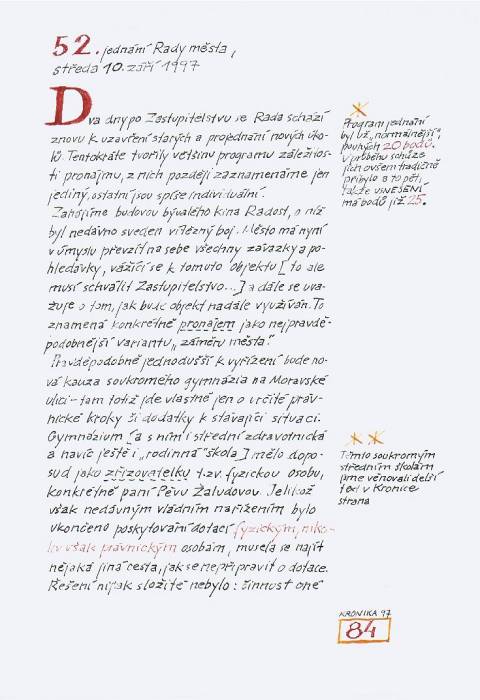 52. jednání Rady města,
středa 10. září 1997
Dva dny po Zastupitelstvu se Rada schází
znovu k uzavření starých a projednání nových úko-
lů. Tentokráte tvořily většinu programu záležitos-
ti pronájmu, z nich později zaznamenáme jen
jediný, ostatní jsou spíše individuální.
Zahájíme budovou bývalého kina Radost, o níž
byl nedávno sveden vítězný boj. Město má nyní
v úmyslu převzít na sebe všechny závazky a po-
hledávky, vážící se k tomuto objektu [to ale
musí schválit Zastupitelstvo...] a dále se uva-
žuje o tom, jak bude objekt nadále využíván. To
znamená konkrétně pronájem jako nejpravdě-
podobnější variantu „záměru města".
Pravděpodobně jednodušší k vyřízení bude no-
vá kauza soukromého gymnázia na Moravské
ulici - tam totiž jde vlastně jen o určité práv-
nické kroky či dodatky k stávající situaci.
Gymnázium [a s ním i střední zdravotnická
a navíc ještě i „rodinná" škola] mělo dopo-
sud jako zřizovatelku t.zv. fyzickou osobu,
konkrétně paní Pěvu Žaludovou. Jelikož
však nedávným vládním nařízením bylo
ukončeno poskytování dotací fyzickým, niko-
liv však právnickým osobám, musela se najít
nějaká jiná cesta, jak se nepřipravit o dotace.
Řešení nijak složité nebylo: činnost oné
*
Program jednání
byl už „normálnější",
pouhých 20 bodů.
V průběhu scháze
jich ovšem tradičně
přibylo a to pět,
takže USNESENÍ
má bodů již 25.
**
Těmto soukromým
středním školám
jsme věnovali delší
text v Kronice
strana
KRONIKA 97
84